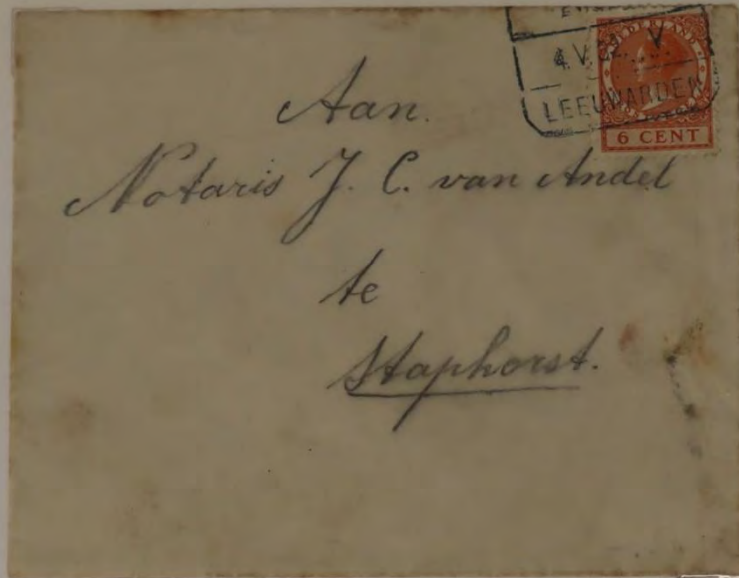 NEDERLAND
4.V
V
LEEUWARDEN
6 CENT
Aan.
Notaris J. C. van Andel
te
Staphorst.